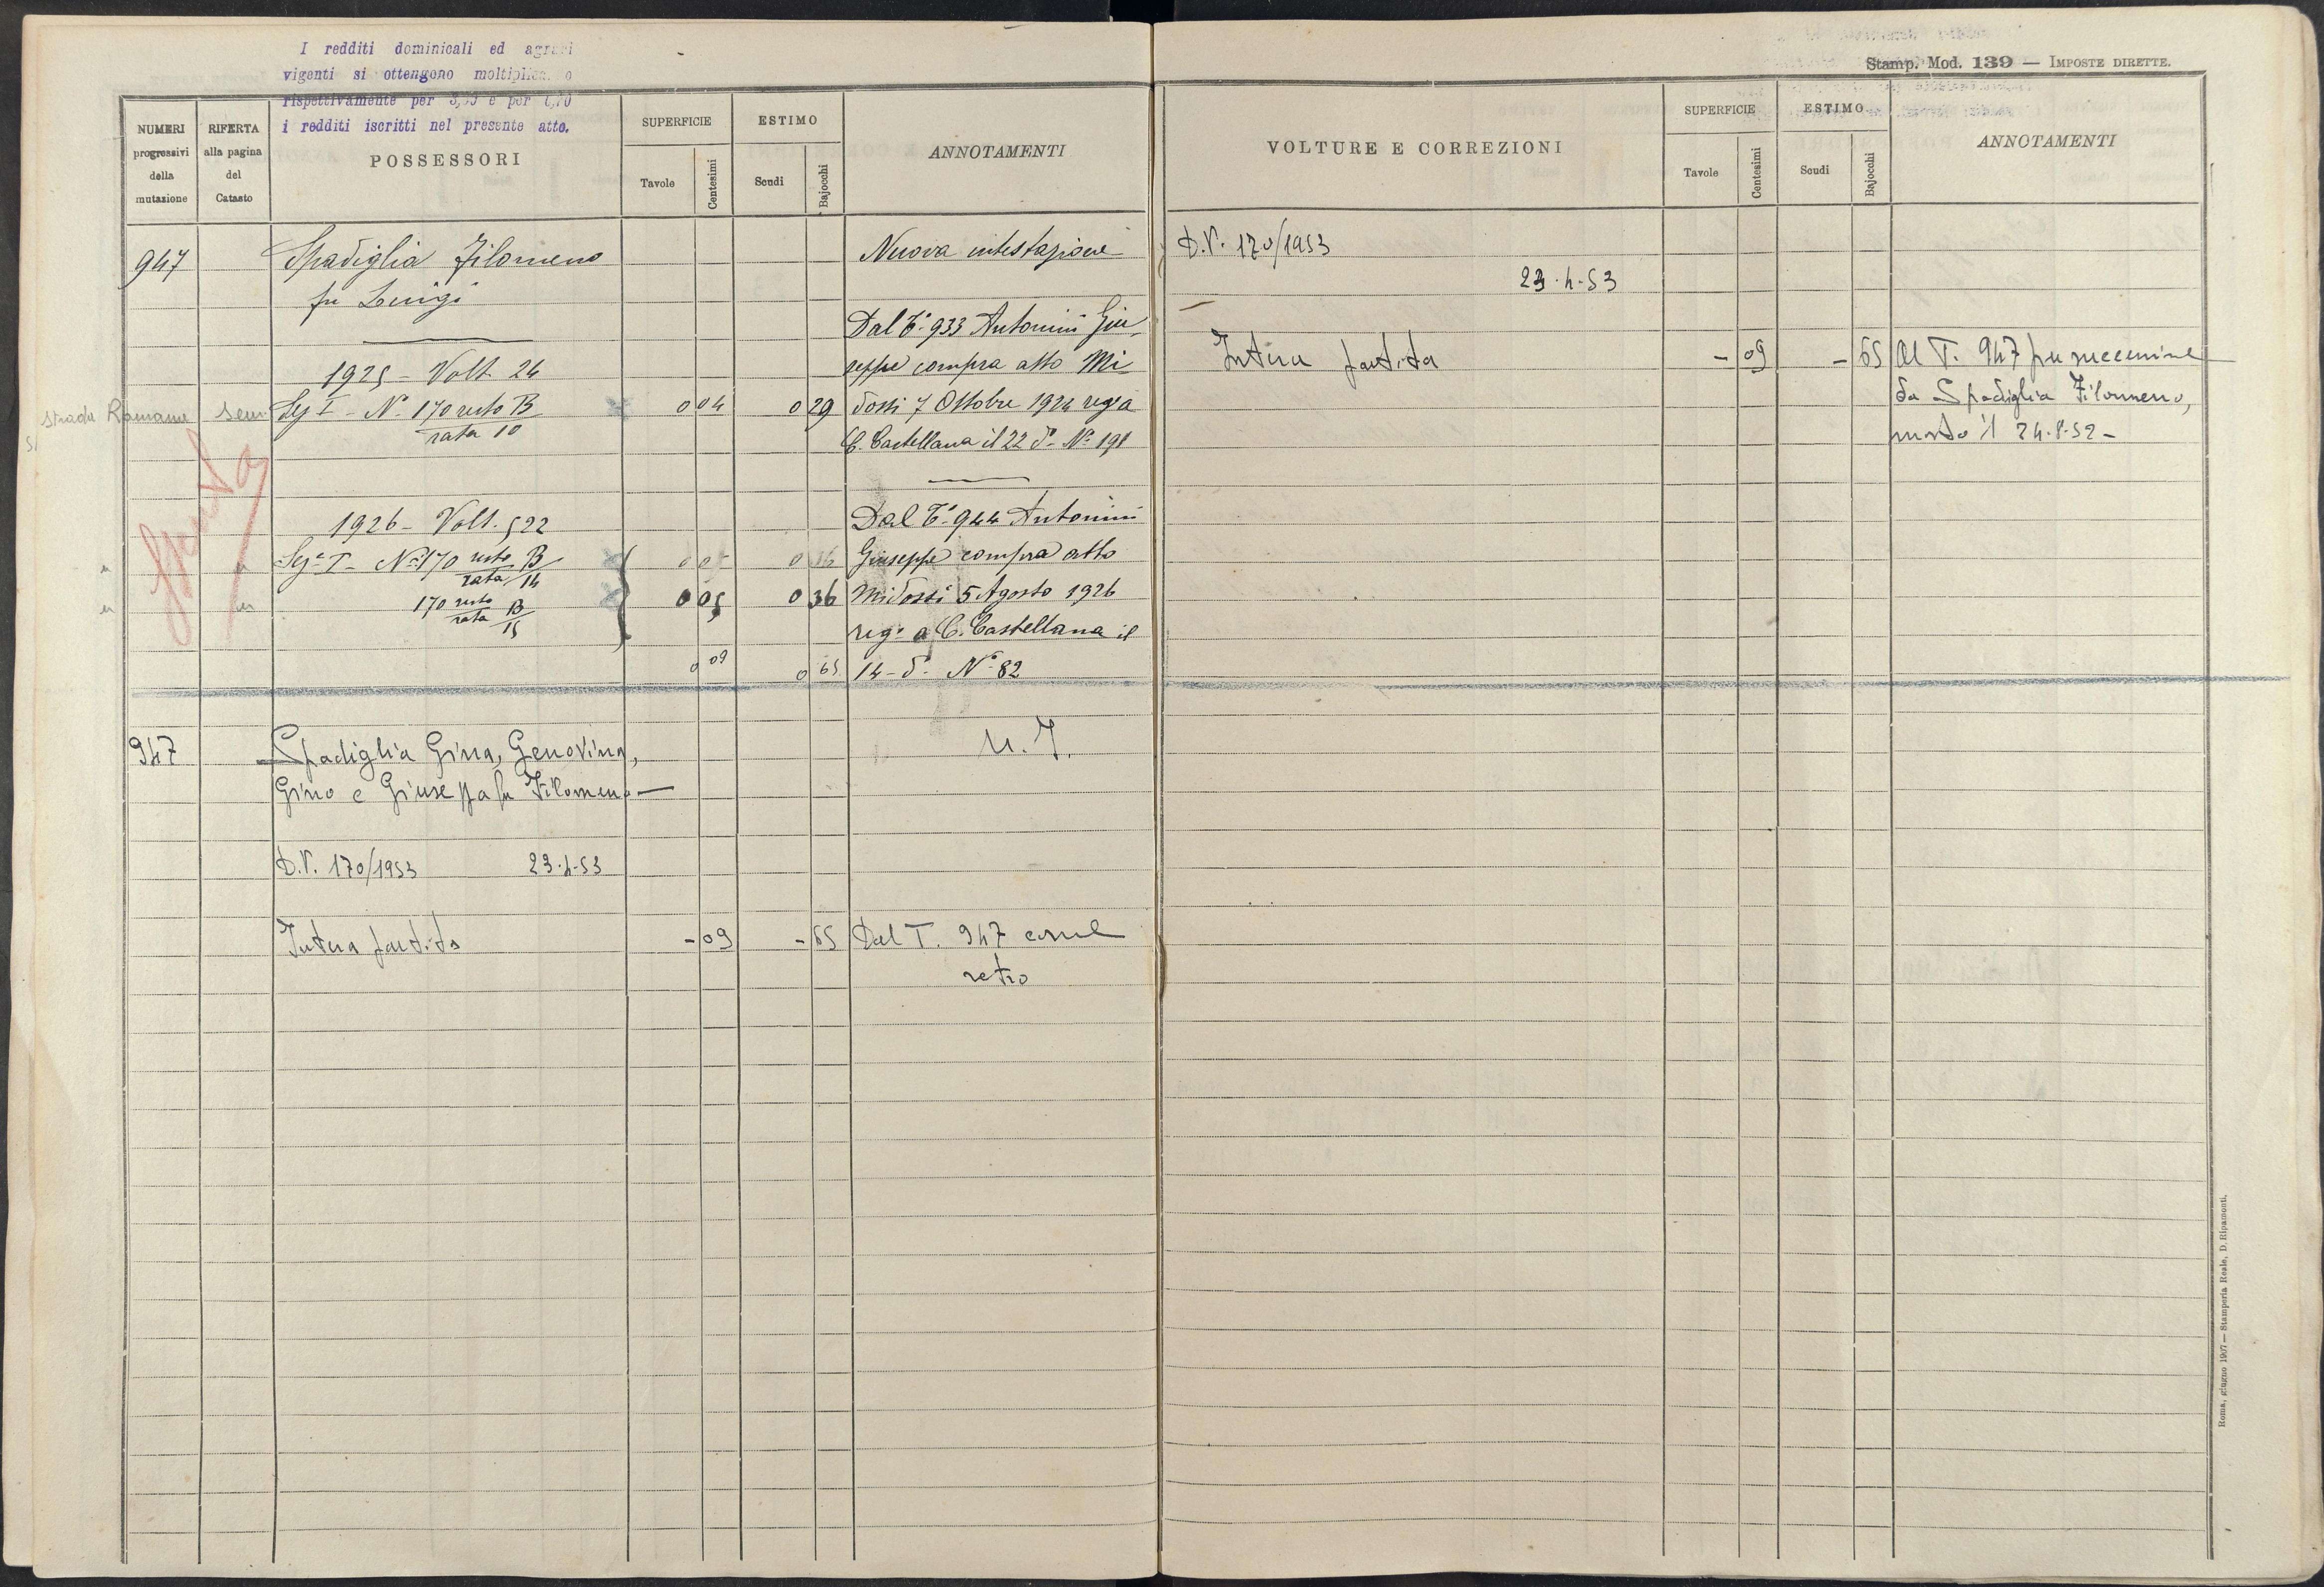 I redditi dominicali ed agrari
vigenti si ottengono moltiplicando
rispettivamente per 3,35 e per 0,70
i redditi iscritti nel presente atto.
NUMERI
progressivi
della
mutazione
RIFERTA
alla pagina
del
Catasto
POSSESSORI
SUPERFICIE
Tavole
Centesimi
ESTIMO
Scudi
Bajocchi
ANNOTAMENTI
947
Spadiglia Filomeno
fu Luigi
Nuova intestazione
Dal T.o 933 Antonini Giu
1925 - Volt. 24
seppe compra atto Mi
Strada Romana Sem.
Sez I - No 170 resto B
rata 10
0 04 0 29
dossi 7 Ottobre 1924 reg a
C. Castellana il 22 do No 191
1926 - Volt. 522
Dal To 944 Antonini
Sez I - No 170 resto B
rata 14
Giuseppe compra atto
170 resto B
rata 15
0 05 0 36
Midossi 5 Agosto 1926
rego a C. Castellana il
0 09 0 65
14 do No 82
947
Spadiglia Gina, Genovina,
Gino e Giuseppa fu Filomeno
N. I.
D.V. 170/1953 23-4-53
Intera partita
- 09 - 65
Dal T. 947 come
retro
Stamp. Mod. 139 — IMPOSTE DIRETTE.
VOLTURE E CORREZIONI
SUPERFICIE
Tavole
Centesimi
ESTIMO
Scudi
Bajocchi
ANNOTAMENTI
D.V. 170/1953
23-4-53
Intera partita
- 09 - 65
Al T. 947 per successione
da Spadiglia Filomeno,
morto il 24-8-52 -
Roma, giugno 1907 — Stamperia Reale, D. Ripamonti.